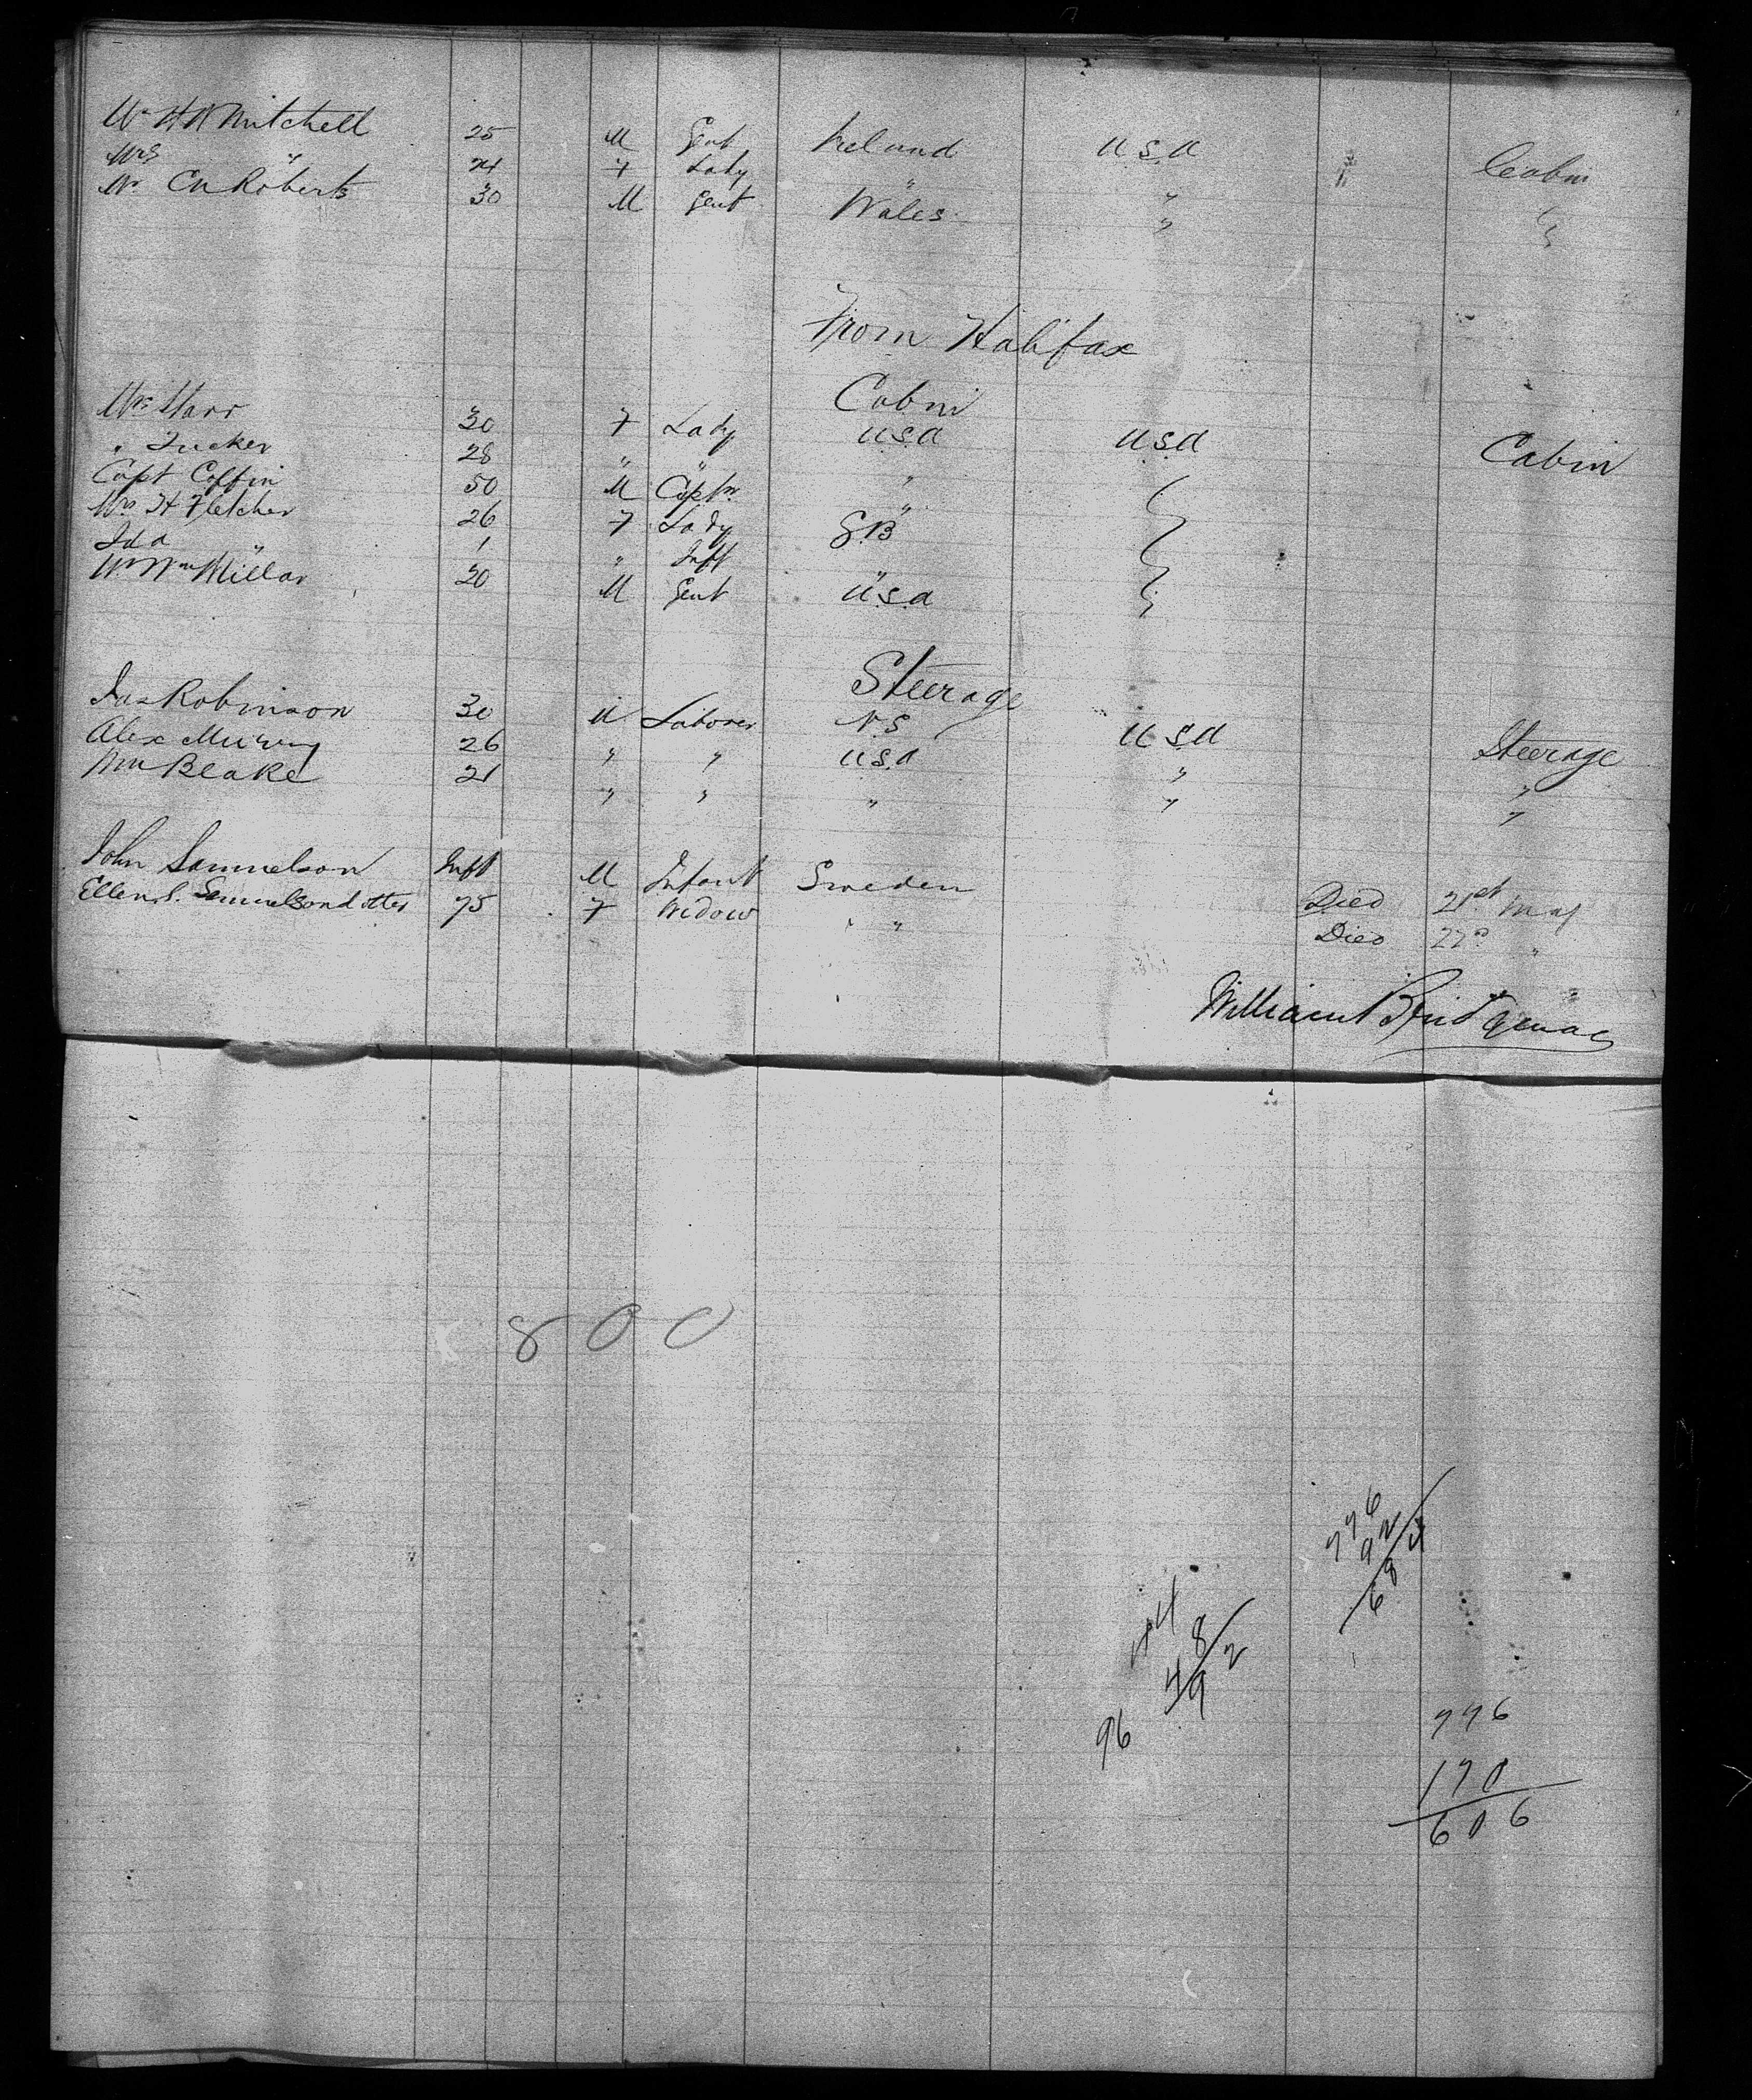 Mr H W Mitchell 25 M Gent Ireland U.S.A Cabin
Mrs " 24 F Lady " " "
Mr C N Roberts 30 M Gent Wales " "
From Halifax
Cabin
Mrs Starr 30 F Lady U.S.A U.S.A Cabin
" Tucker 28 " " "
Capt Coffin 50 M Captn "
Mrs H Fletcher 26 F Lady G.B
Ida " 1 " Inft "
Mr Wm Millar 20 M Gent U.S.A
Steerage
Jas Robinson 30 M Laborer N.S U.S.A Steerage
Alex Murray 26 " " U.S.A " "
Wm Blake 21 " " " " "
John Samuelson Inft M Infant Sweden Died 21st May
Ellen S. Samuelsondotter 75 F Widow " Died 22d "
William Bridgeman
800
776
92
684
104
8
4
92
96
776
170
606